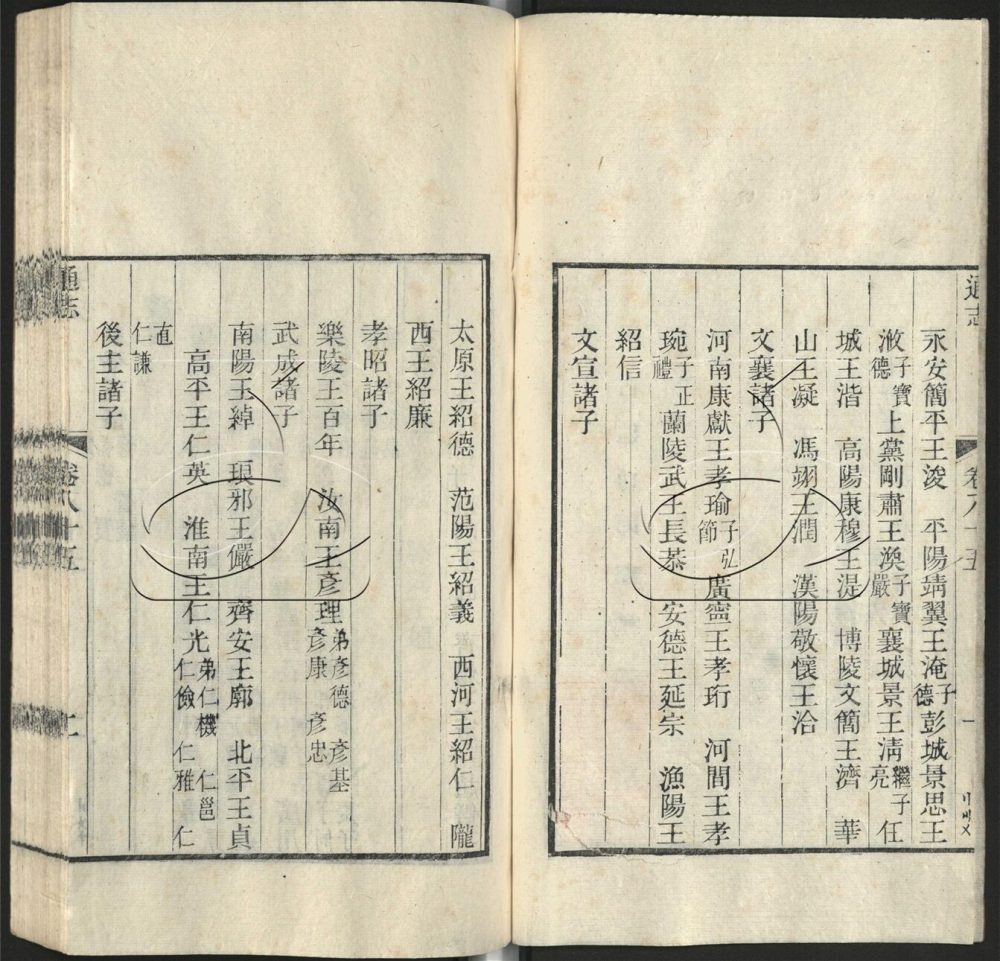 通志
卷八十五
一
永安簡平王浚 平陽靖翼王淹子德彭城景思王
浟子寶德上黨剛肅王渙子寶嚴襄城景王淯繼子亮任
城王湝 高陽康穆王湜 博陵文簡王濟 華
山王凝 馮翊王潤 漢陽敬懷王洽
文襄諸子
河南康獻王孝瑜子弘節廣寧王孝珩 河間王孝
琬子正禮蘭陵武王長恭 安德王延宗 漁陽王
紹信
文宣諸子
太原王紹德 范陽王紹義 西河王紹仁 隴
西王紹廉
孝昭諸子
樂陵王百年 汝南王彥理弟彥德 彥基 彥康 彥忠
武成諸子
南陽王綽 琅邪王儼 齊安王廓 北平王貞
高平王仁英 淮南王仁光弟仁機 仁邕 仁儉 仁雅 仁
直 仁謙
後主諸子
通志
卷八十五